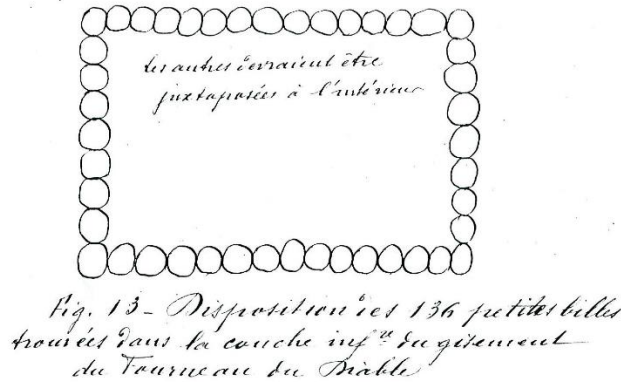 Les autres devraient être
juxtaposées à l'intérieur
Fig. 13 - Disposition des 136 petites billes
trouvées dans la couche infre du gisement
du Fourneau du Diable